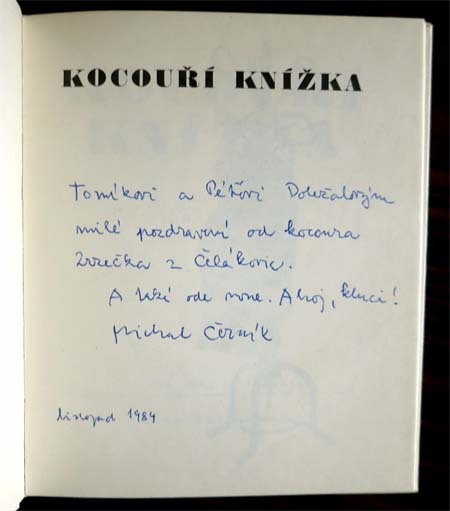 KOCOUŘÍ KNÍŽKA
Tomíkovi a Péťovi Doležalovým
milé pozdravení od kocoura
Zrzečka z Čelákovic.
A též ode mne. Ahoj, kluci!
Michal Černík
listopad 1984